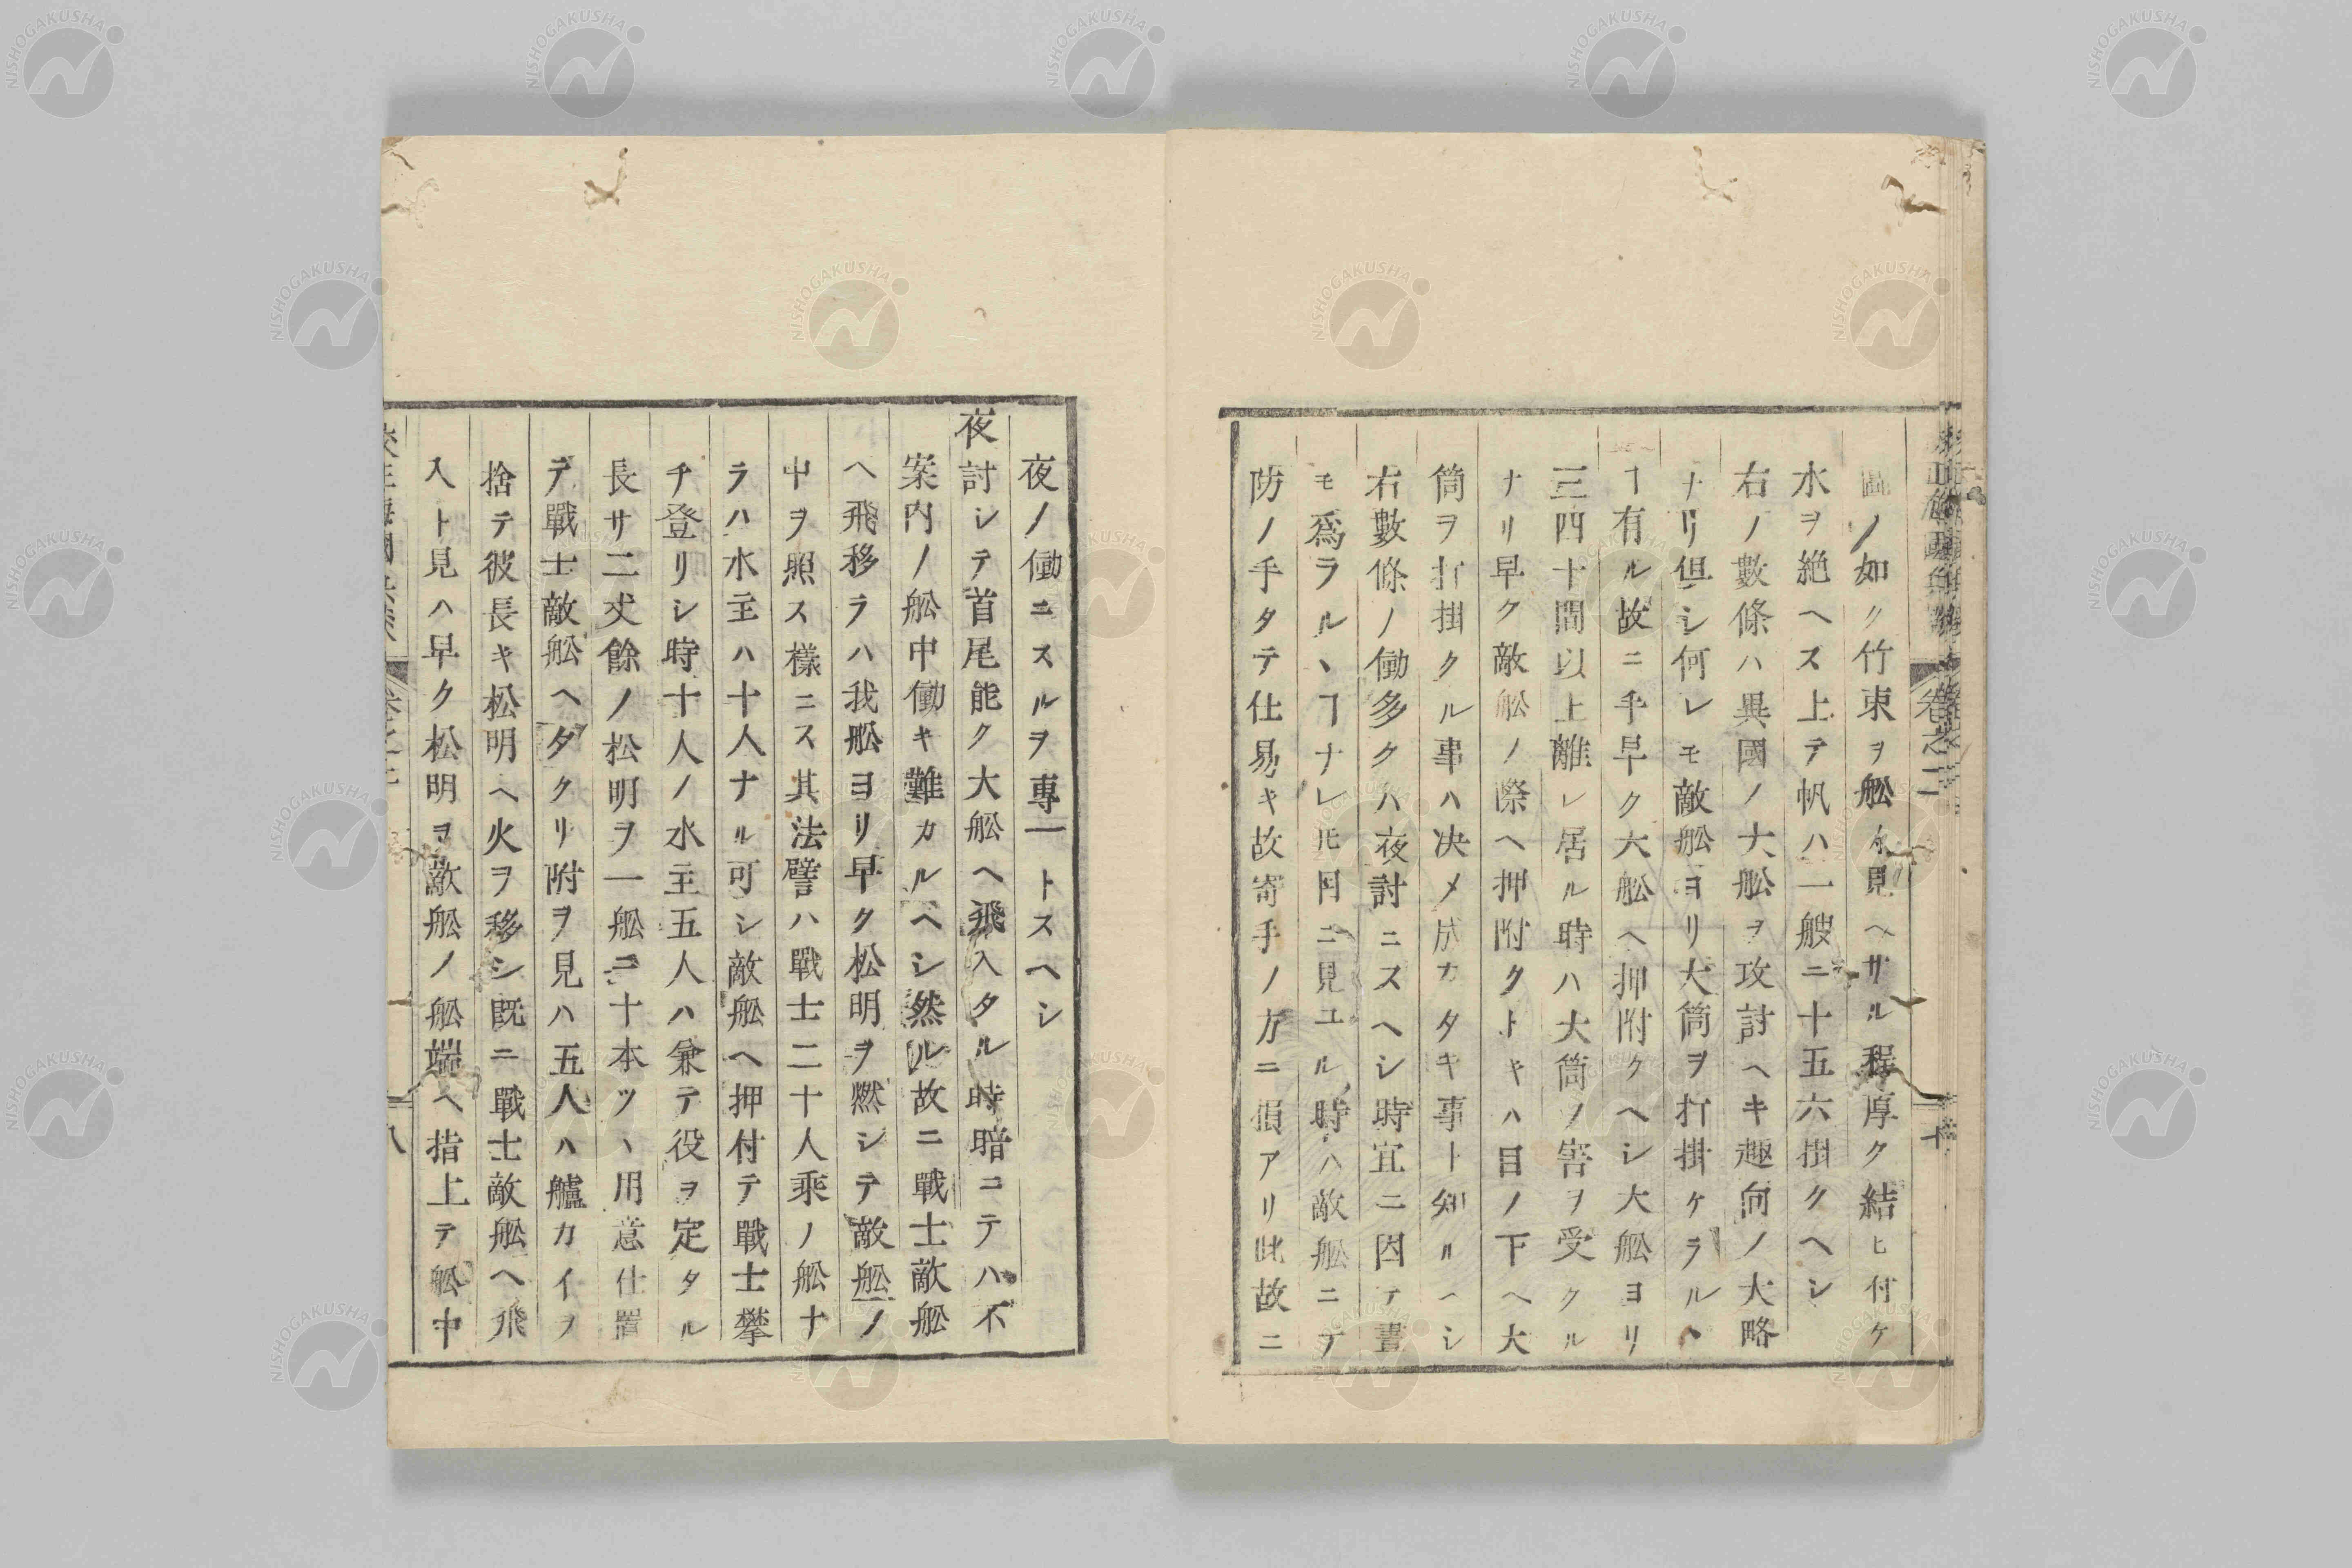 圖ノ如ク竹束ヲ舩ノ見ヘサル程厚ク結ヒ付ケ
水ヲ絶ヘス上テ帆ハ一艘ニ十五六掛クヘシ
右ノ數條ハ異國ノ大舩ヲ攻討ヘキ趣向ノ大略
ナリ但シ何レモ敵舩ヨリ大筒ヲ打掛ケラルヽ
ヿ有ル故ニ手早ク大舩ヘ押附クヘシ大舩ヨリ
三四十間以上離レ居ル時ハ大筒ノ害ヲ受クル
ナリ早ク敵舩ノ際ヘ押附クトキハ目ノ下ヘ大
筒ヲ打掛クル事ハ决メ成カタキ事ト知ルヘシ
右數條ノ働多クハ夜討ニスヘシ時宜ニ因テ晝
モ爲ラルヽヿナレ𪜈目ニ見ユル時ハ敵舩ニテ
防ノ手タテ仕易キ故寄手ノ方ニ損アリ此故ニ
卷之二
十
夜ノ働ニスルヲ專一トスヘシ
夜討シテ首尾能ク大舩ヘ飛入タル時暗ニテハ不
案内ノ舩中働キ難カルヘシ然ル故ニ戰士敵舩
ヘ飛移ラハ我舩ヨリ早ク松明ヲ燃シテ敵舩ノ
中ヲ照ス樣ニス其法譬ハ戰士二十人乘ノ舩ナ
ラハ水主ハ十人ナル可シ敵舩ヘ押付テ戰士攀
チ登リシ時十人ノ水主五人ハ兼テ役ヲ定タル
長サ二丈餘ノ松明ヲ一舩ニ十本ツヽ用意仕置
テ戰士敵舩ヘタクリ附ヲ見ハ五人ハ艫カイヲ
捨テ彼長キ松明ヘ火ヲ移シ既ニ戰士敵舩ヘ飛
入ト見ハ早ク松明ヲ敵舩ノ舩端ヘ指上テ舩中
NISHOGAKUSHA